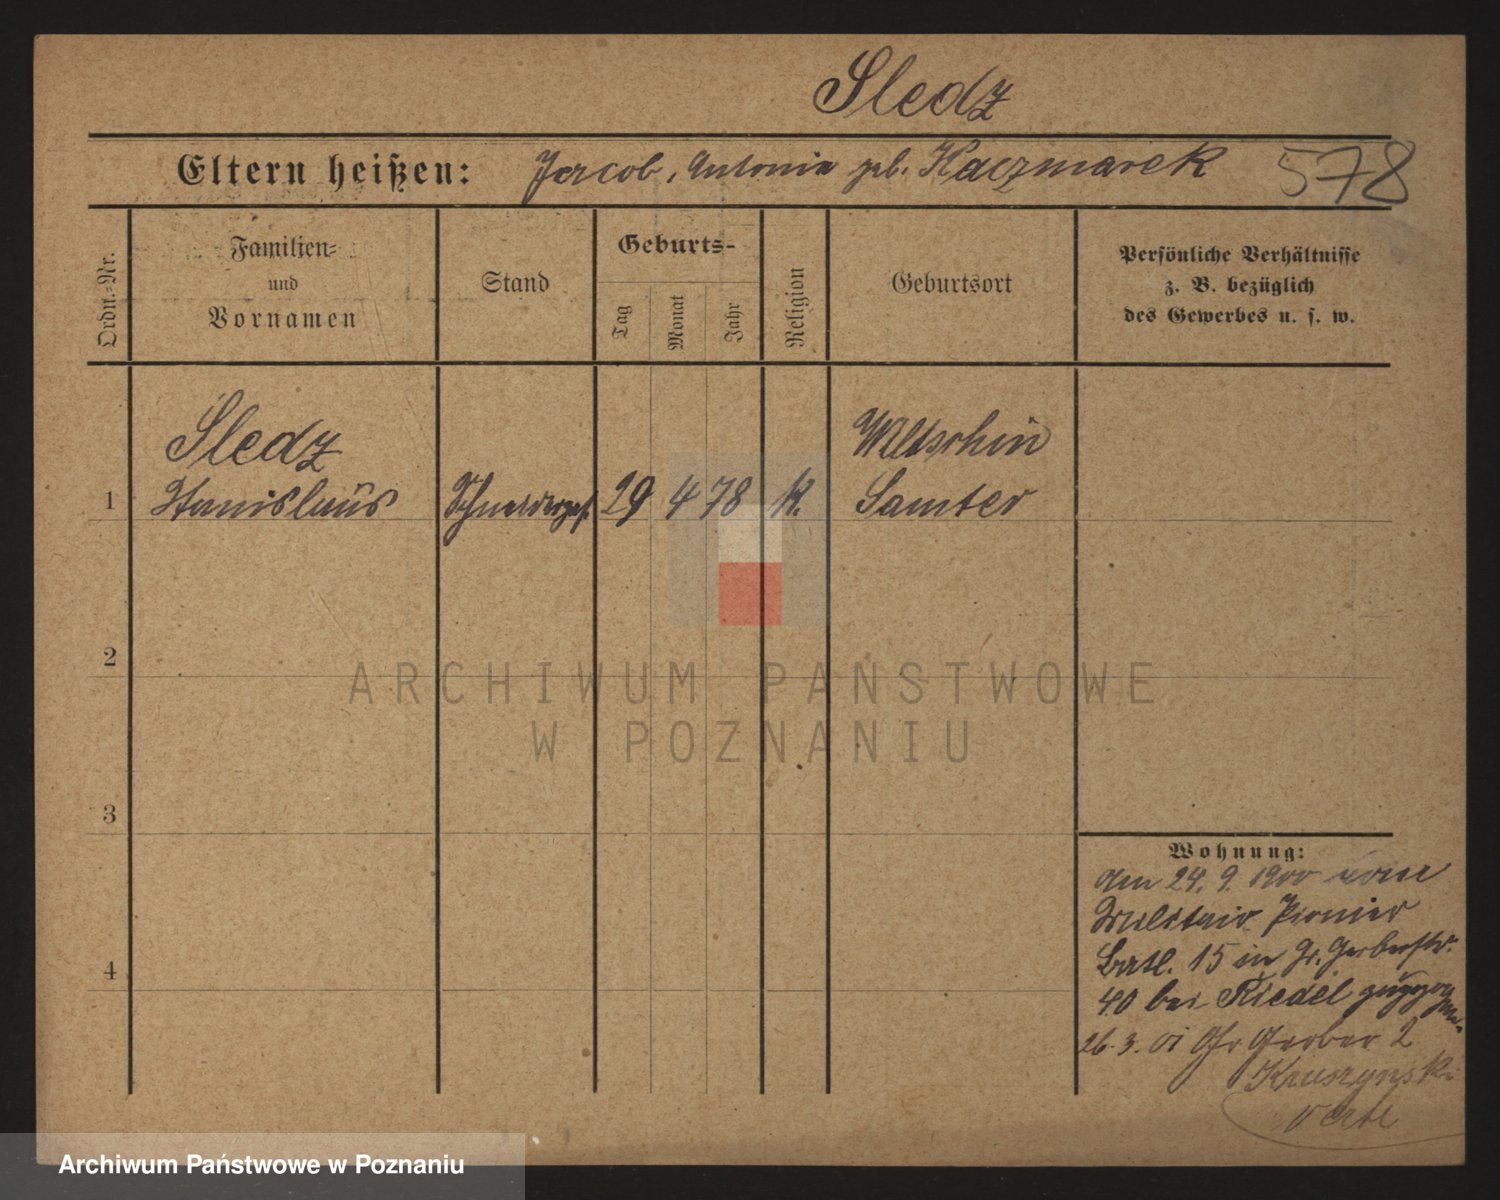 Sledz
Eltern heißen: Jacob, Antonia geb. Kaczmarek 578
Ordn.-Nr.
Familien-
und
Vornamen
Stand
Geburts-
Tag
Monat
Jahr
Religion
Geburtsort
Persönliche Verhältnisse
z. B. bezüglich
des Gewerbes u. s. w.
Sledz Wiltschin
1 Stanislaus Schneiderges. 29 4 78 k. Samter
2
3
4
Wohnung:
am 24. 9. 1900 vom
Militair Pionier
Batl. 15 in Gr. Gerberstr.
40 bei Riedel zugezogen.
26. 3. 01 Gr Gerber 2
Kruszynski
verte
ARCHIWUM PAŃSTWOWE
W POZNANIU
Archiwum Państwowe w Poznaniu